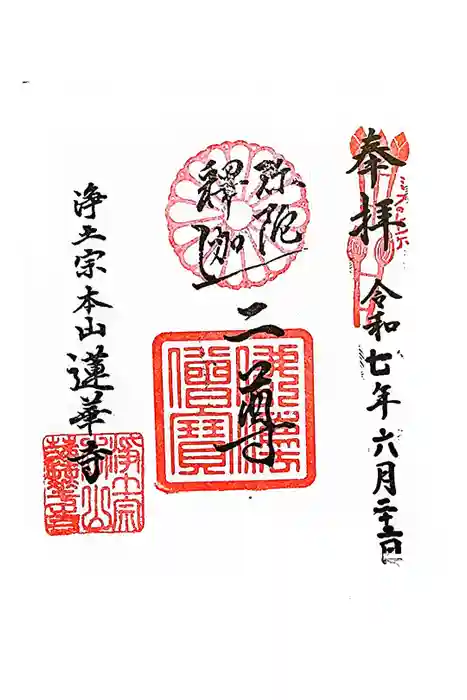 奉拝
令和七年六月二十五日
弥陀
釋迦
二尊
佛法僧寳
浄土宗本山蓮華寺